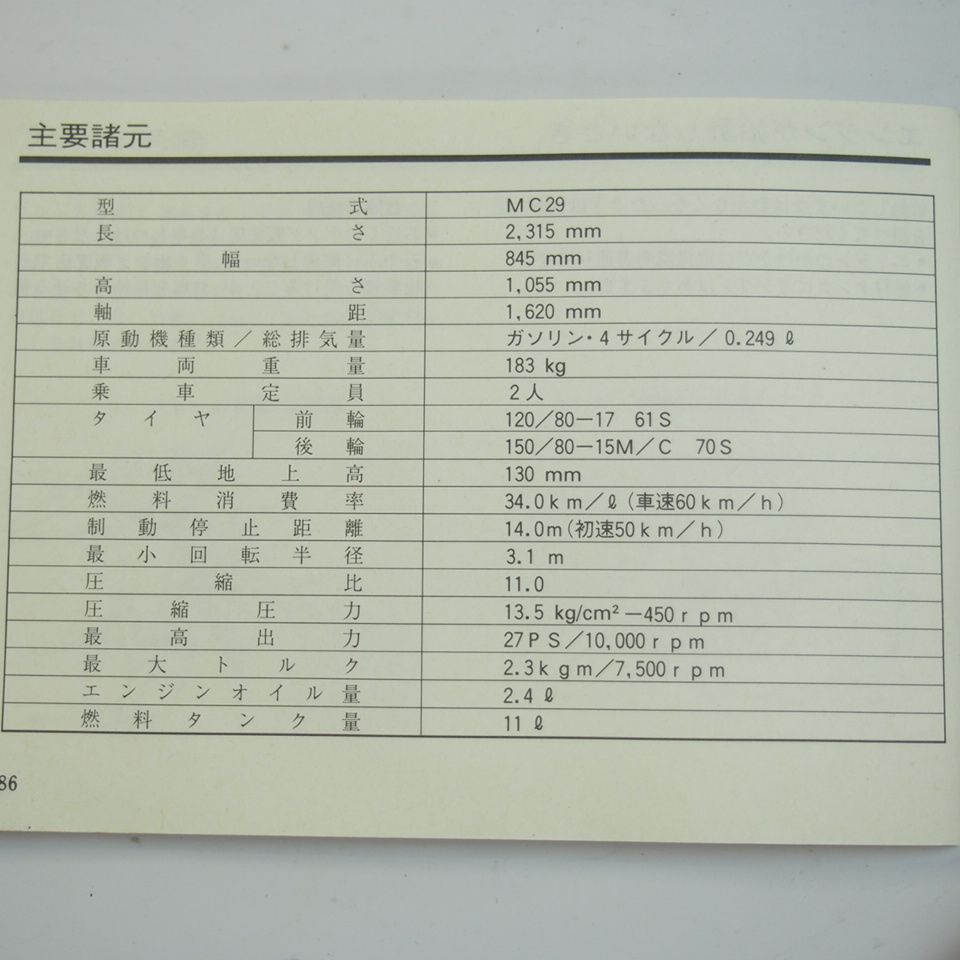 主要諸元
型式 MC29
長さ 2,315 mm
幅 845 mm
高さ 1,055 mm
軸距 1,620 mm
原動機種類／総排気量 ガソリン・4サイクル／0.249 ℓ
車両重量 183 kg
乗車定員 2人
タイヤ 前輪 120／80－17 61S
後輪 150／80－15M／C 70S
最低地上高 130 mm
燃料消費率 34.0km／ℓ（車速60km／h）
制動停止距離 14.0m（初速50km／h）
最小回転半径 3.1 m
圧縮比 11.0
圧縮圧力 13.5 kg/cm²－450rpm
最高出力 27PS／10,000rpm
最大トルク 2.3kgm／7,500rpm
エンジンオイル量 2.4 ℓ
燃料タンク量 11 ℓ
86